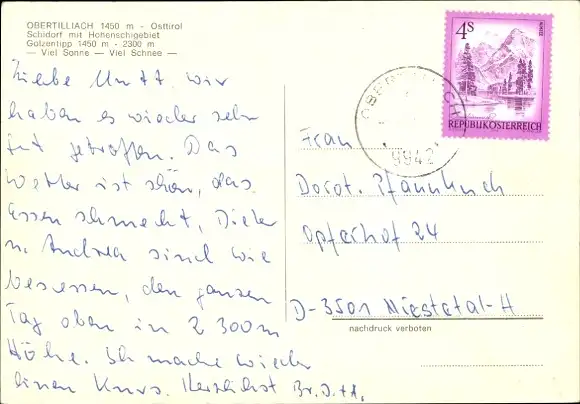 OBERTILLIACH 1450 m - Osttirol
Schidorf mit Höhenschigebiet
Golzentipp 1450 m - 2300 m
— Viel Sonne — Viel Schnee —
Liebe Mutt. wir
haben es wieder sehr
gut getroffen. Das
Wetter ist schön, das
Essen schmeckt, Dieter
u. Andrea sind wie
besessen, den ganzen
Tag oben in 2 300 m
Höhe. Ich mache wieder
einen Kurs. Herzlichst Br. D. + A.
4 S
REPUBLIK ÖSTERREICH
OBERTILLIACH
9942
Frau
Dorot. Pfannkuch
Opferhof 24
D-3501 Niestetal-H
nachdruck verboten